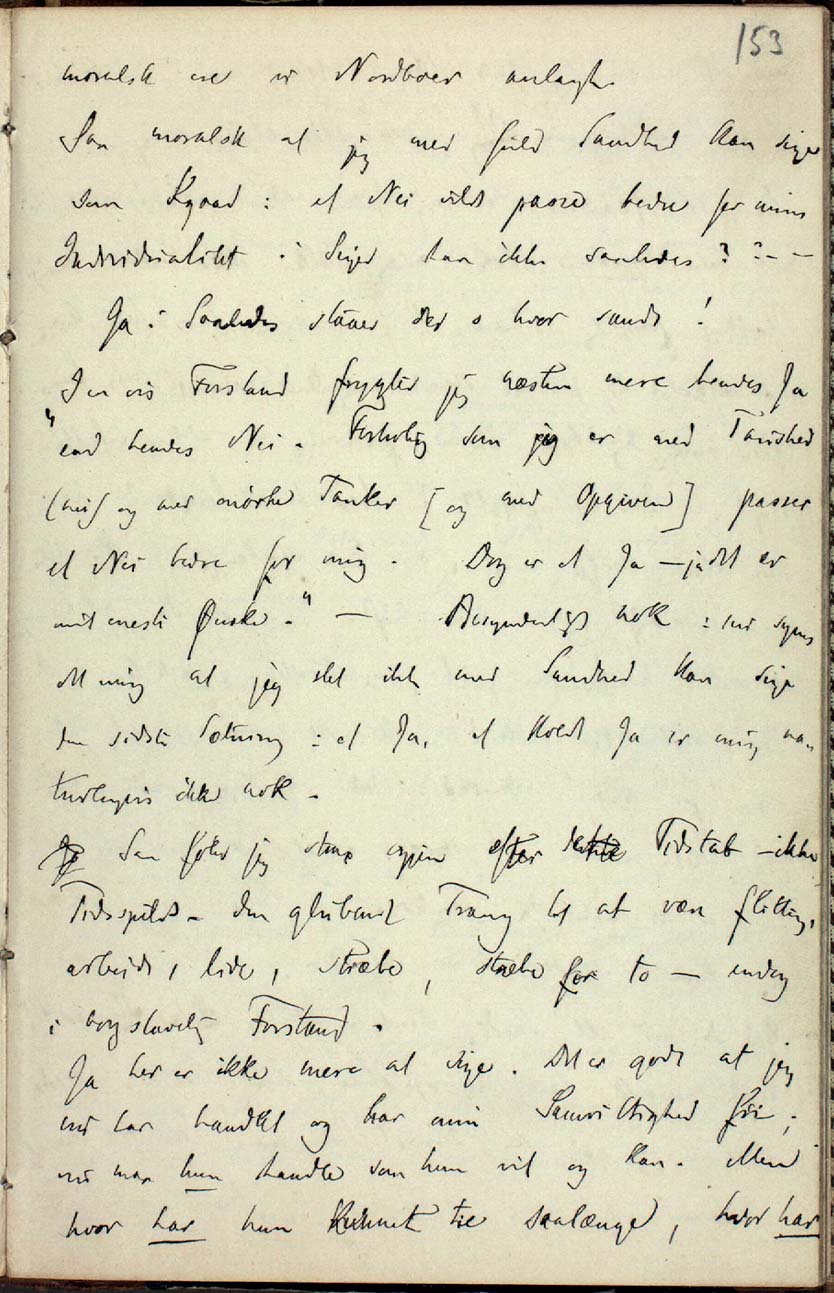 153
moralsk ere vi Nordboer anlagte.
Saa moralsk at jeg med fuld Sandhed kan sige
som Kgaard: et Nei vilde passe bedre for min
Individualitet. Siger han ikke saaledes? ? - -
Ja: Saaledes staaer der o hvor sandt!
"I en vis Forstand frygter jeg næsten mere hendes Ja
end hendes Nei. Fortrolig som jeg er med Taushed
( ) og med mørke Tanker [og med Opgiven] passer
et Nei bedre for mig. Dog er et Ja — ja det er
mit eneste Ønske." — Besynderligt nok: nu synes
det mig at jeg slet ikke med Sandhed kan sige
den sidste Sætning: et Ja, et koldt Ja er mig na-
turligvis ikke nok.
Saa føler jeg strax igjen efter dette Tidstab - ikke
Tidsspilde - den glubende Trang til at være flittig,
arbeide, lide, stræbe, stræbe for to — endog
i bogstavelig Forstand.
Ja her er ikke mere at sige. Det er godt at jeg
nu har handlet og har min Samvittighed fri;
nu maa hun handle som hun vil og kan. Men
hvor har hun kunnet tie saalænge, hvor har